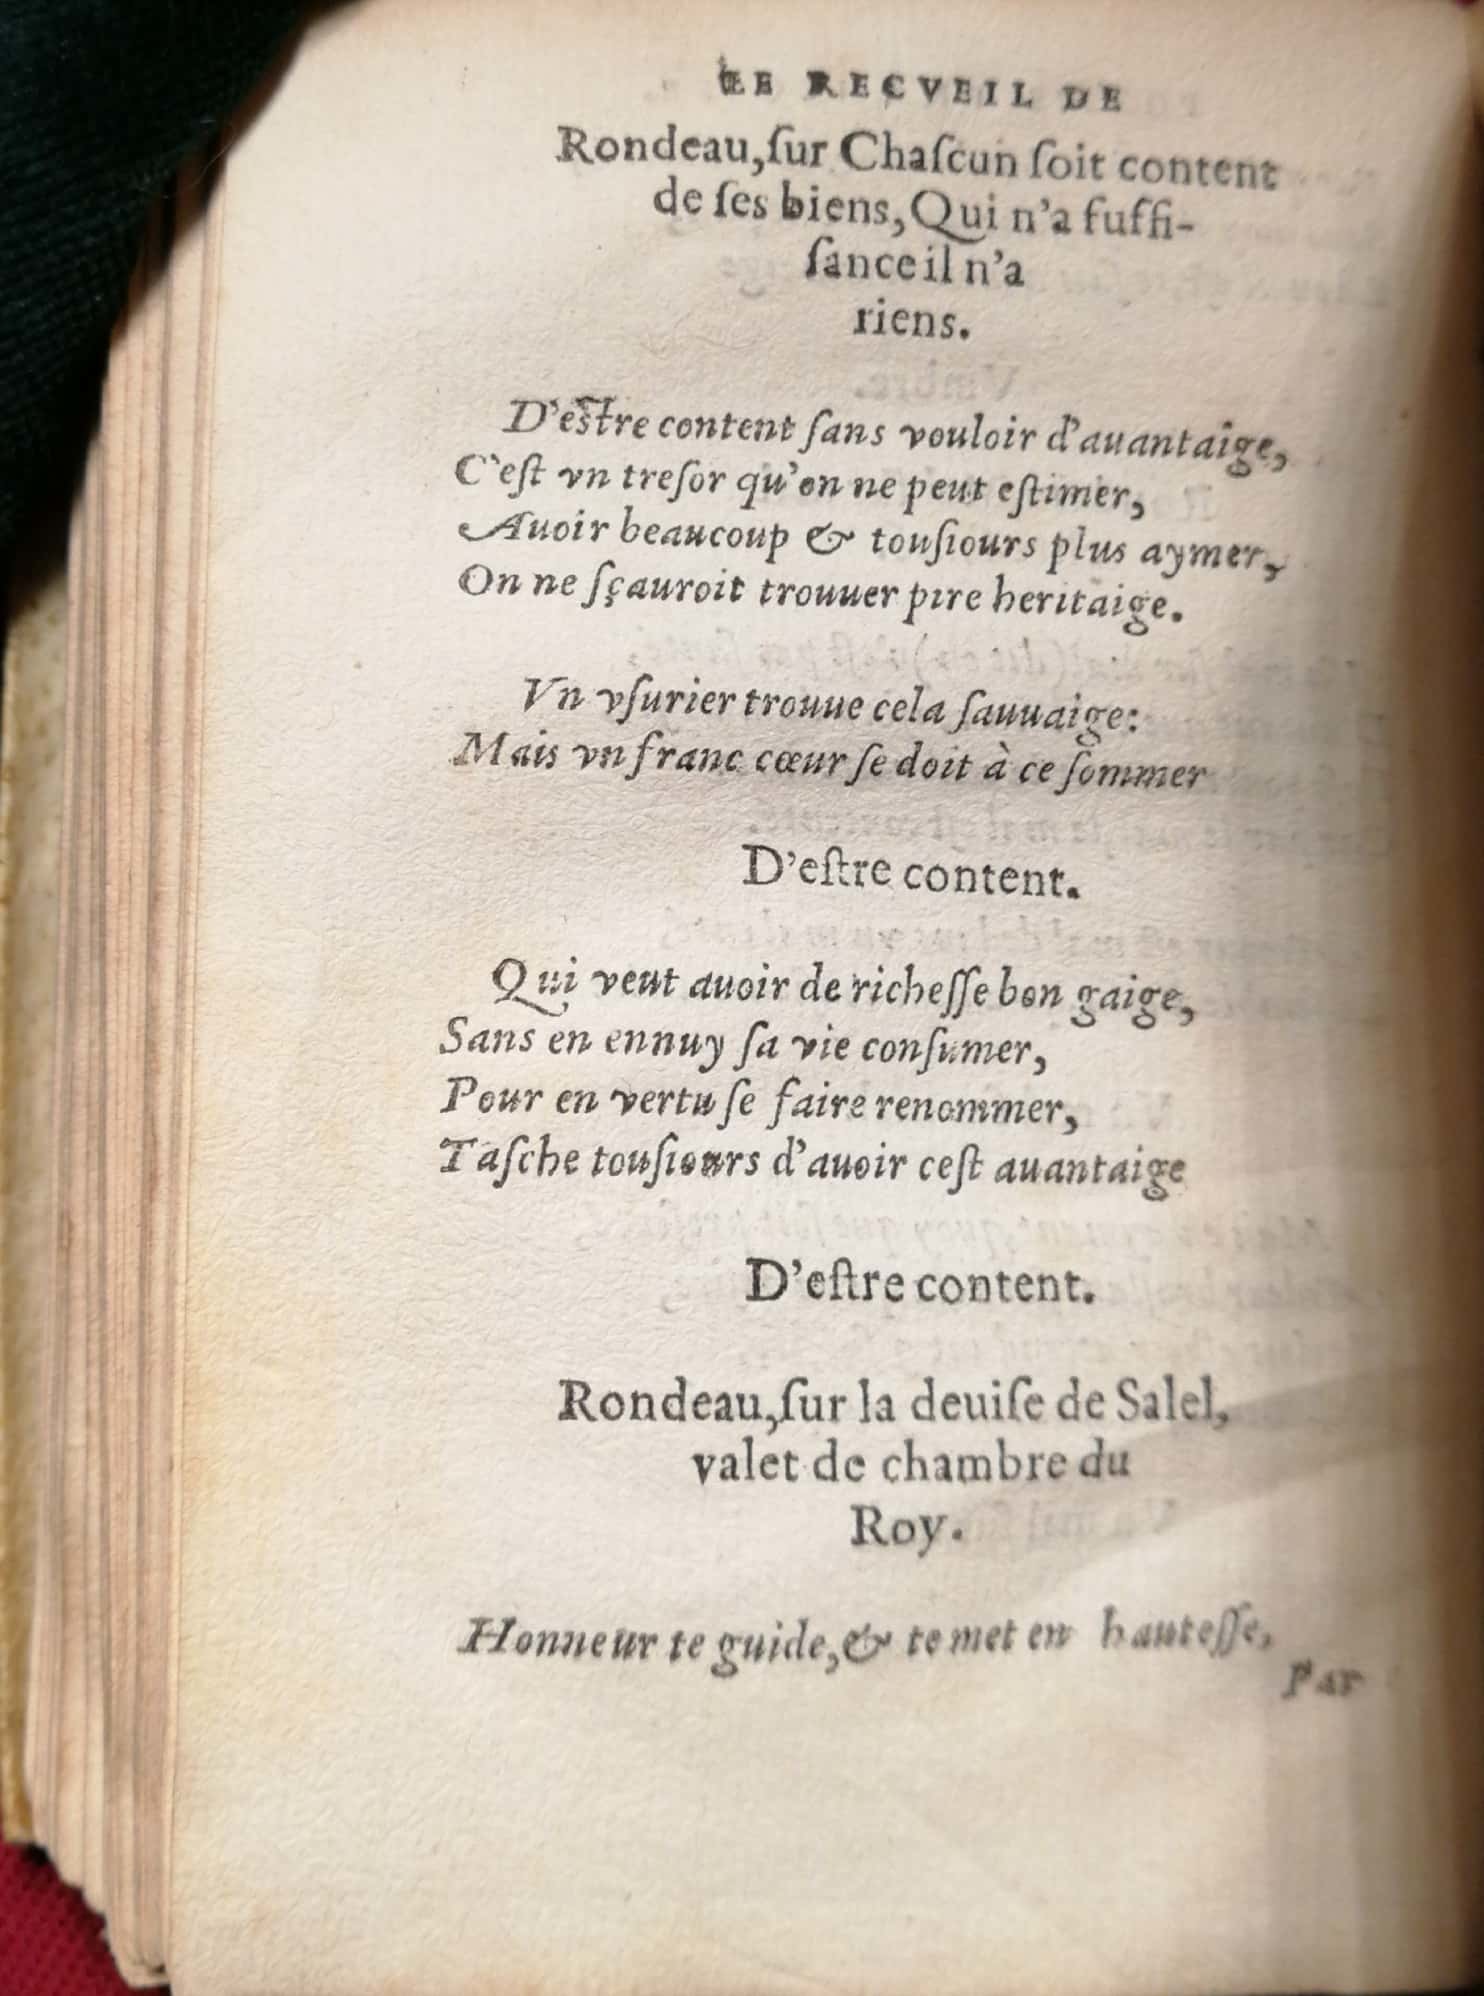 LE RECVEIL DE
Rondeau, ſur Chaſcun ſoit content
de ſes biens, Qui n'a ſuffi-
ſance il n'a
riens.
D'eſtre content ſans vouloir d'auantaige,
C'eſt vn treſor qu'on ne peut eſtimer,
Auoir beaucoup & touſiours plus aymer,
On ne ſçauroit trouuer pire heritaige.
Vn vſurier trouue cela ſauuaige:
Mais vn franc cœur ſe doit à ce ſommer
D'eſtre content.
Qui veut auoir de richeſſe bon gaige,
Sans en ennuy ſa vie conſumer,
Pour en vertu ſe faire renommer,
Taſche touſiours d'auoir ceſt auantaige
D'eſtre content.
Rondeau, ſur la deuiſe de Salel,
valet de chambre du
Roy.
Honneur te guide, & te met en hauteſſe,
Par